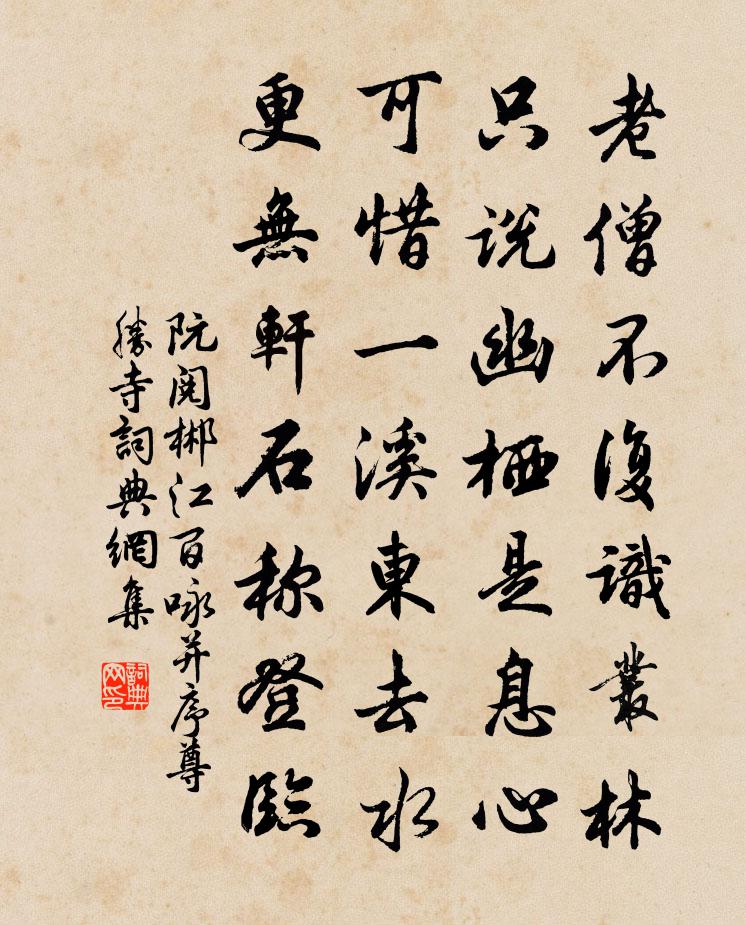 老僧不復識叢林
只說幽栖是息心
可惜一溪東去水
更無軒石称登臨
阮閱郴江百咏并序尊
勝寺詞典網集
詞典网印